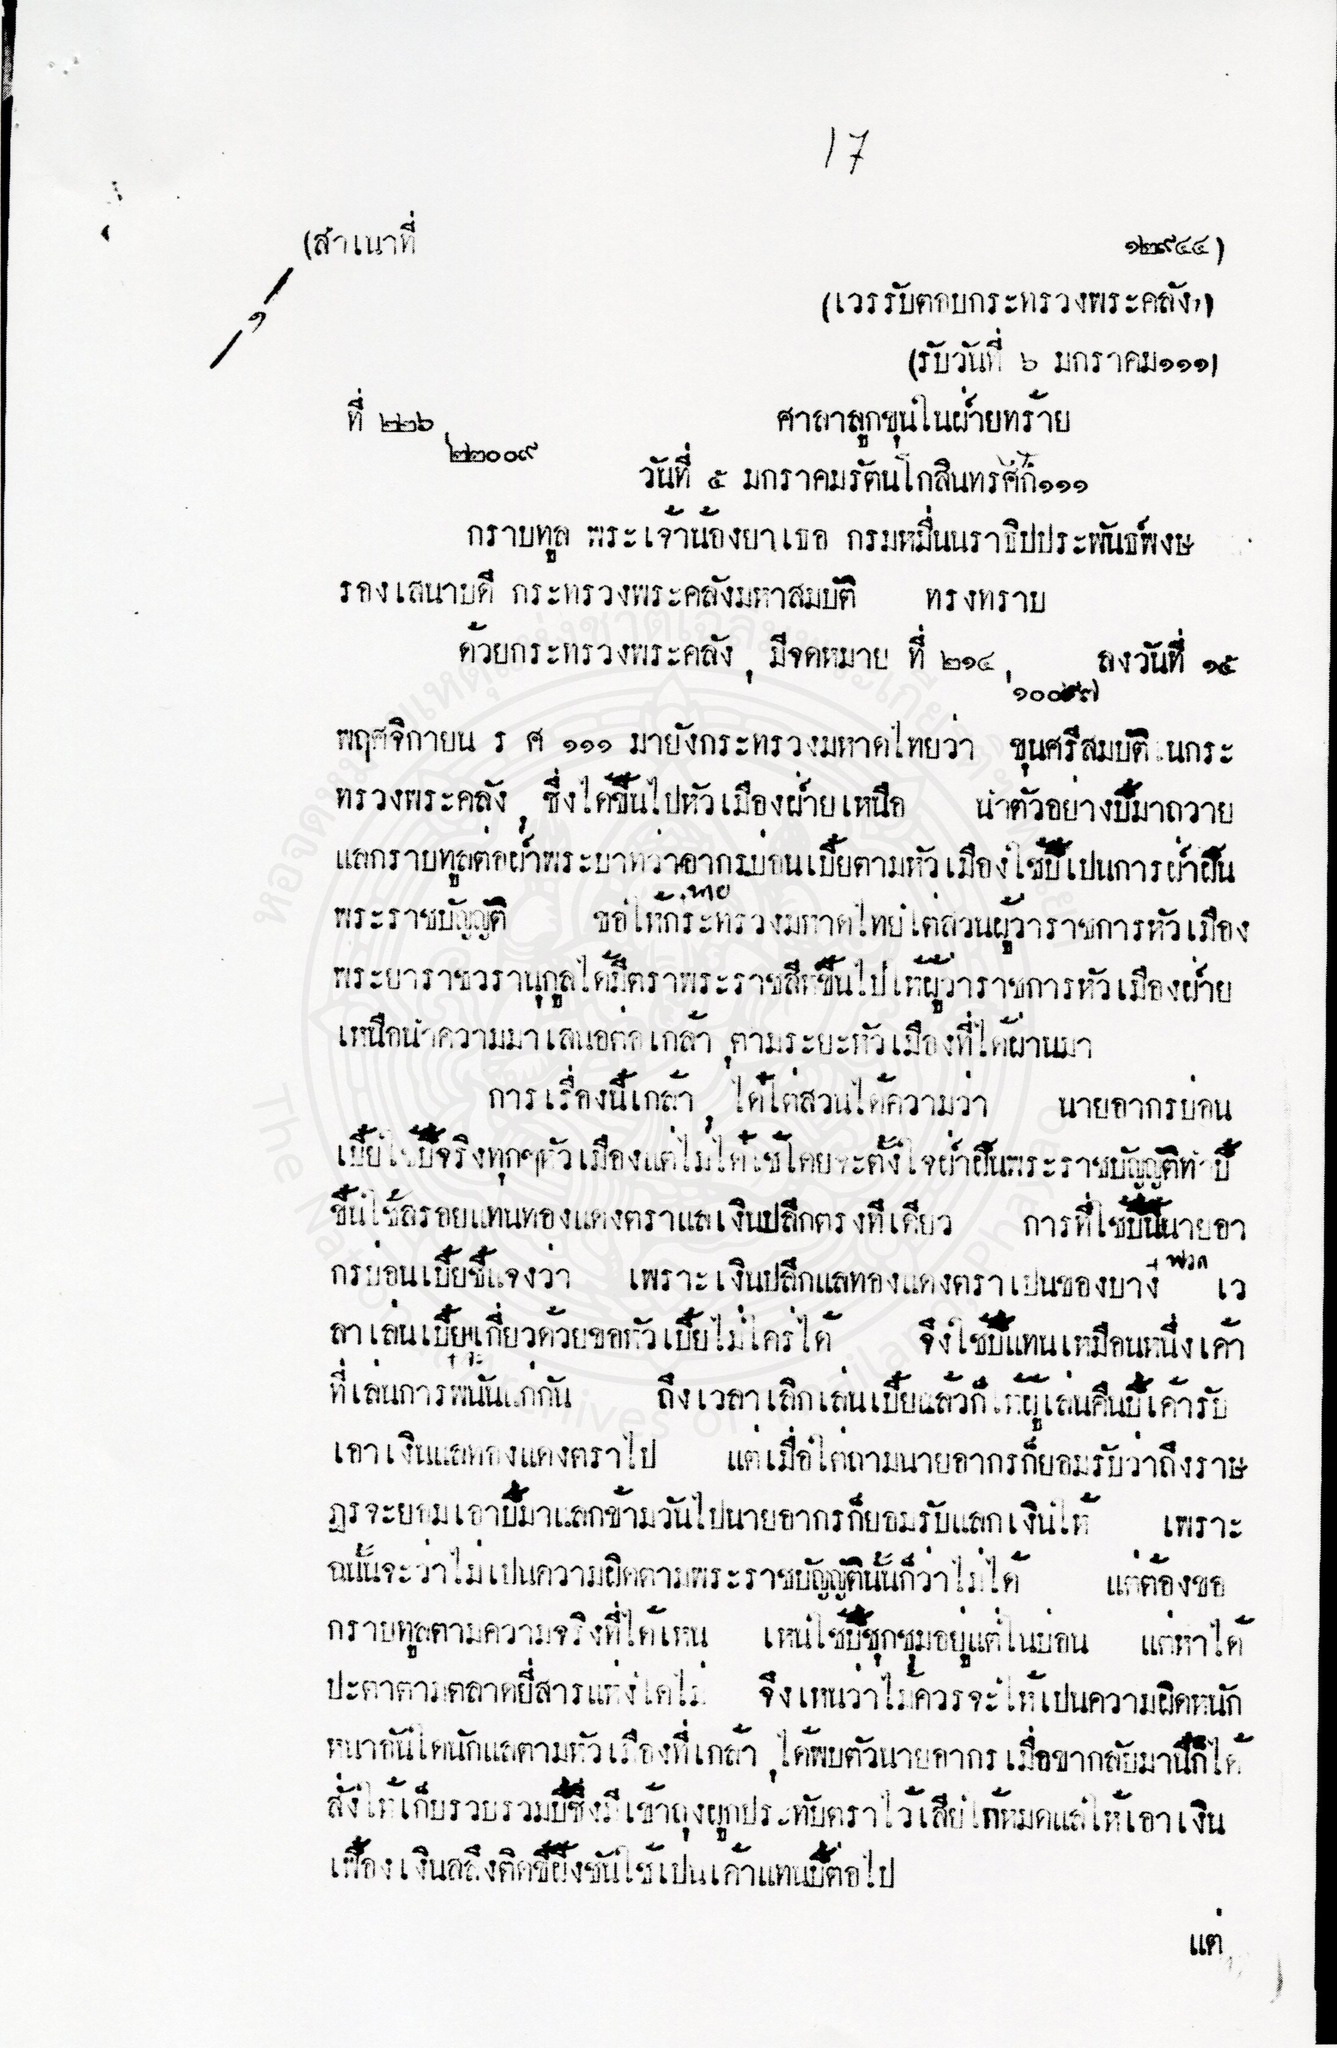 17
(สำเนาที่ ๑๒๙๔๔)
(เวรรับตอบกระทรวงพระคลังฯ)
(รับวันที่ ๖ มกราคม๑๑๑)
ที่ ๒๒๖ ศาลาลูกขุนในฝ่ายทร้าย
๒๒๐๐๙
วันที่ ๕ มกราคมรัตนโกสินทรศก๑๑๑
กราบทูล พระเจ้าน้องยาเธอ กรมหมื่นนราธิปประพันธ์พงษ
รองเสนาบดี กระทรวงพระคลังมหาสมบัติ ทรงทราบ
ด้วยกระทรวงพระคลังฯ มีจดหมาย ที่ ๒๑๔ ลงวันที่ ๑๕
พฤศจิกายน ร ศ ๑๑๑ มายังกระทรวงมหาดไทยว่า ขุนศรีสมบัติในกระ
ทรวงพระคลังฯ ซึ่งได้ขึ้นไปหัวเมืองฝ่ายเหนือ นำตัวอย่างปี้มาถวาย
แลกราบทูลต่อฝ่าพระบาทว่าอากรบ่อนเบี้ยตามหัวเมืองใช้ปี้เปนการฝ่าฝืน
พระราชบัญญัติ ขอให้กระทรวงมหาดไทยไต่สวนผู้ว่าราชการหัวเมือง
พระยาราชวรานุกูลได้มีตราพระราชสีห์ขึ้นไปให้ผู้ว่าราชการหัวเมืองฝ่าย
เหนือนำความมาเสนอต่อเกล้าฯ ตามระยะหัวเมืองที่ได้ผ่านมา
การเรื่องนี้เกล้าฯ ได้ไต่สวนได้ความว่า นายอากรบ่อน
เบี้ยใช้ปี้จริงทุกๆหัวเมืองแต่ไม่ได้ใช้โดยจะตั้งใจฝ่าฝืนพระราชบัญญัติทำปี้
ขึ้นใช้สรอยแทนทองแดงตราแลเงินปลีกตรงทีเดียว การที่ใช้ปี้นี้นายอา
กรบ่อนเบี้ยชี้แจงว่า เพราะเงินปลีกแลทองแดงตราเปนของบาง พวก เว
ลาเล่นเบี้ยเกี่ยวด้วยขอหัวเบี้ยไม่ใคร่ได้ จึงใช้ปี้แทนเหมือนหนึ่งเค้า
ที่เล่นการพนันแก่กัน ถึงเวลาเลิกเล่นเบี้ยแล้วก็ให้ผู้เล่นคืนปี้เค้ารับ
เอาเงินแลทองแดงตราไป แต่เมื่อไต่ถามนายอากรก็ยอมรับว่าถึงราษ
ฎรจะยอมเอาปี้มาแลกข้ามวันไปนายอากรก็ยอมรับแลกเงินให้ เพราะ
ฉนั้นจะว่าไม่เปนความผิดตามพระราชบัญญัตินั้นก็ว่าไม่ได้ แต่ต้องขอ
กราบทูลตามความจริงที่ได้เหน เหนใช้ปี้ชุกชุมอยู่แต่ในบ่อน แต่หาได้
ปะตาตามตลาดยี่สารแห่งใดไม่ จึงเหนว่าไม่ควรจะให้เปนความผิดหนัก
หนาอันใดนักแลตามหัวเมืองที่เกล้าฯ ได้พบตัวนายอากรเมื่อขากลับมานี้ก็ได้
สั่งให้เก็บรวบรวมปี้ซึ่งมีเข้าถุงผูกประทับตราไว้เสียให้หมดแลให้เอาเงิน
เฟื้องเงินสลึงติดขี้ผึ้งชันใช้เปนเค้าแทนปี้ต่อไป
แต่